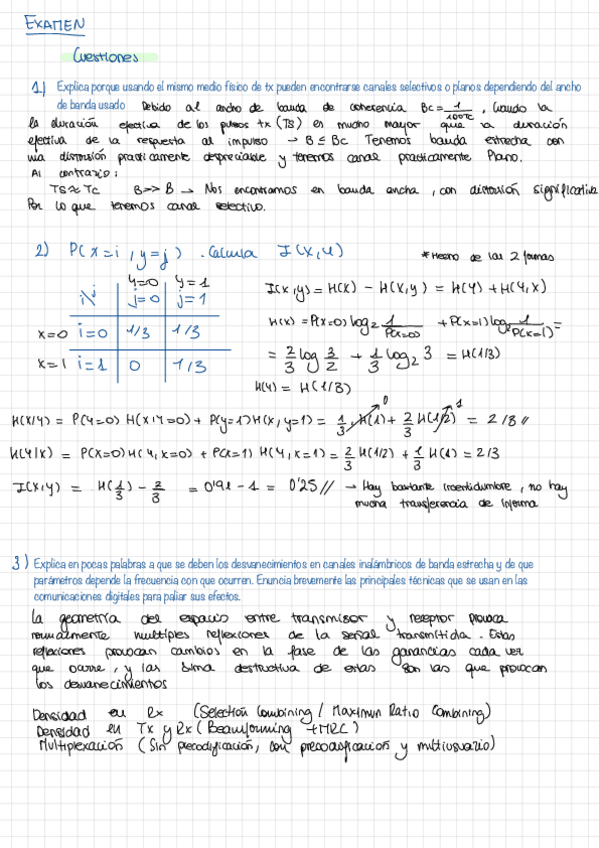 EXAMEN
Cuestiones
1) Explica porque usando el mismo medio físico de tx pueden encontrarse canales selectivos o planos dependiendo del ancho
de banda usado Debido al ancho de banda de coherencia Bc = 1/100τc , cuando la
la duración efectiva de los pulsos tx (TS) en mucho mayor que la duración
efectiva de la respuesta al impulso → B ≤ Bc Tenemos banda estrecha con
una distorsión practicamente despreciable y tenemos canal practicamente Plano.
Al contrario:
TS ≈ Tc B >> B → Nos encontramos en banda ancha, con distorsión significativa
Por lo que tenemos canal selectivo.
2) P(x=i, y=j). Calcula I(X,Y) * Hecho de las 2 formas
y=0 y=1
i\j j=0 j=1
x=0 i=0 1/3 1/3
x=1 i=1 0 1/3
I(x,y) = H(x) - H(x,y) = H(y) + H(y,x)
H(x) = P(x=0) log2 1/P(x=0) + P(x=1) log2 1/P(x=1) =
= 2/3 log 3/2 + 1/3 log2 3 = H(1/3)
H(y) = H(1/3)
H(x/y) = P(y=0) H(x,y=0) + P(y=1) H(x,y=1) = 1/3 . H(1) + 2/3 H(1/2) = 2/3 //
0 1
H(y|x) = P(x=0) H(y,x=0) + P(x=1) H(y,x=1) = 2/3 H(1/2) + 1/3 H(1) = 2/3
I(x,y) = H(1/3) - 2/3 = 0'91 - 1 = 0'25 // → Hay bastante incertidumbre, no hay
mucha transferencia de informa
3) Explica en pocas palabras a que se deben los desvanecimientos en canales inalámbricos de banda estrecha y de que
parámetros depende la frecuencia con que ocurren. Enuncia brevemente las principales técnicas que se usan en las
comunicaciones digitales para paliar sus efectos.
La geometría del espacio entre transmisor y receptor provoca
normalmente multiples reflexiones de la señal transmitida. Estas
reflexiones provocan cambios en la fase de las ganancias cada vez
que ocurre, y las suma destructiva de estas son las que provocan
los desvanecimientos
Densidad en Rx (Selection Combining / Maximun Ratio Combining)
Densidad en Tx y Rx (Beamforming + MRC)
Multiplexación (Sin precodificación, con precodificacion y multiusuario)